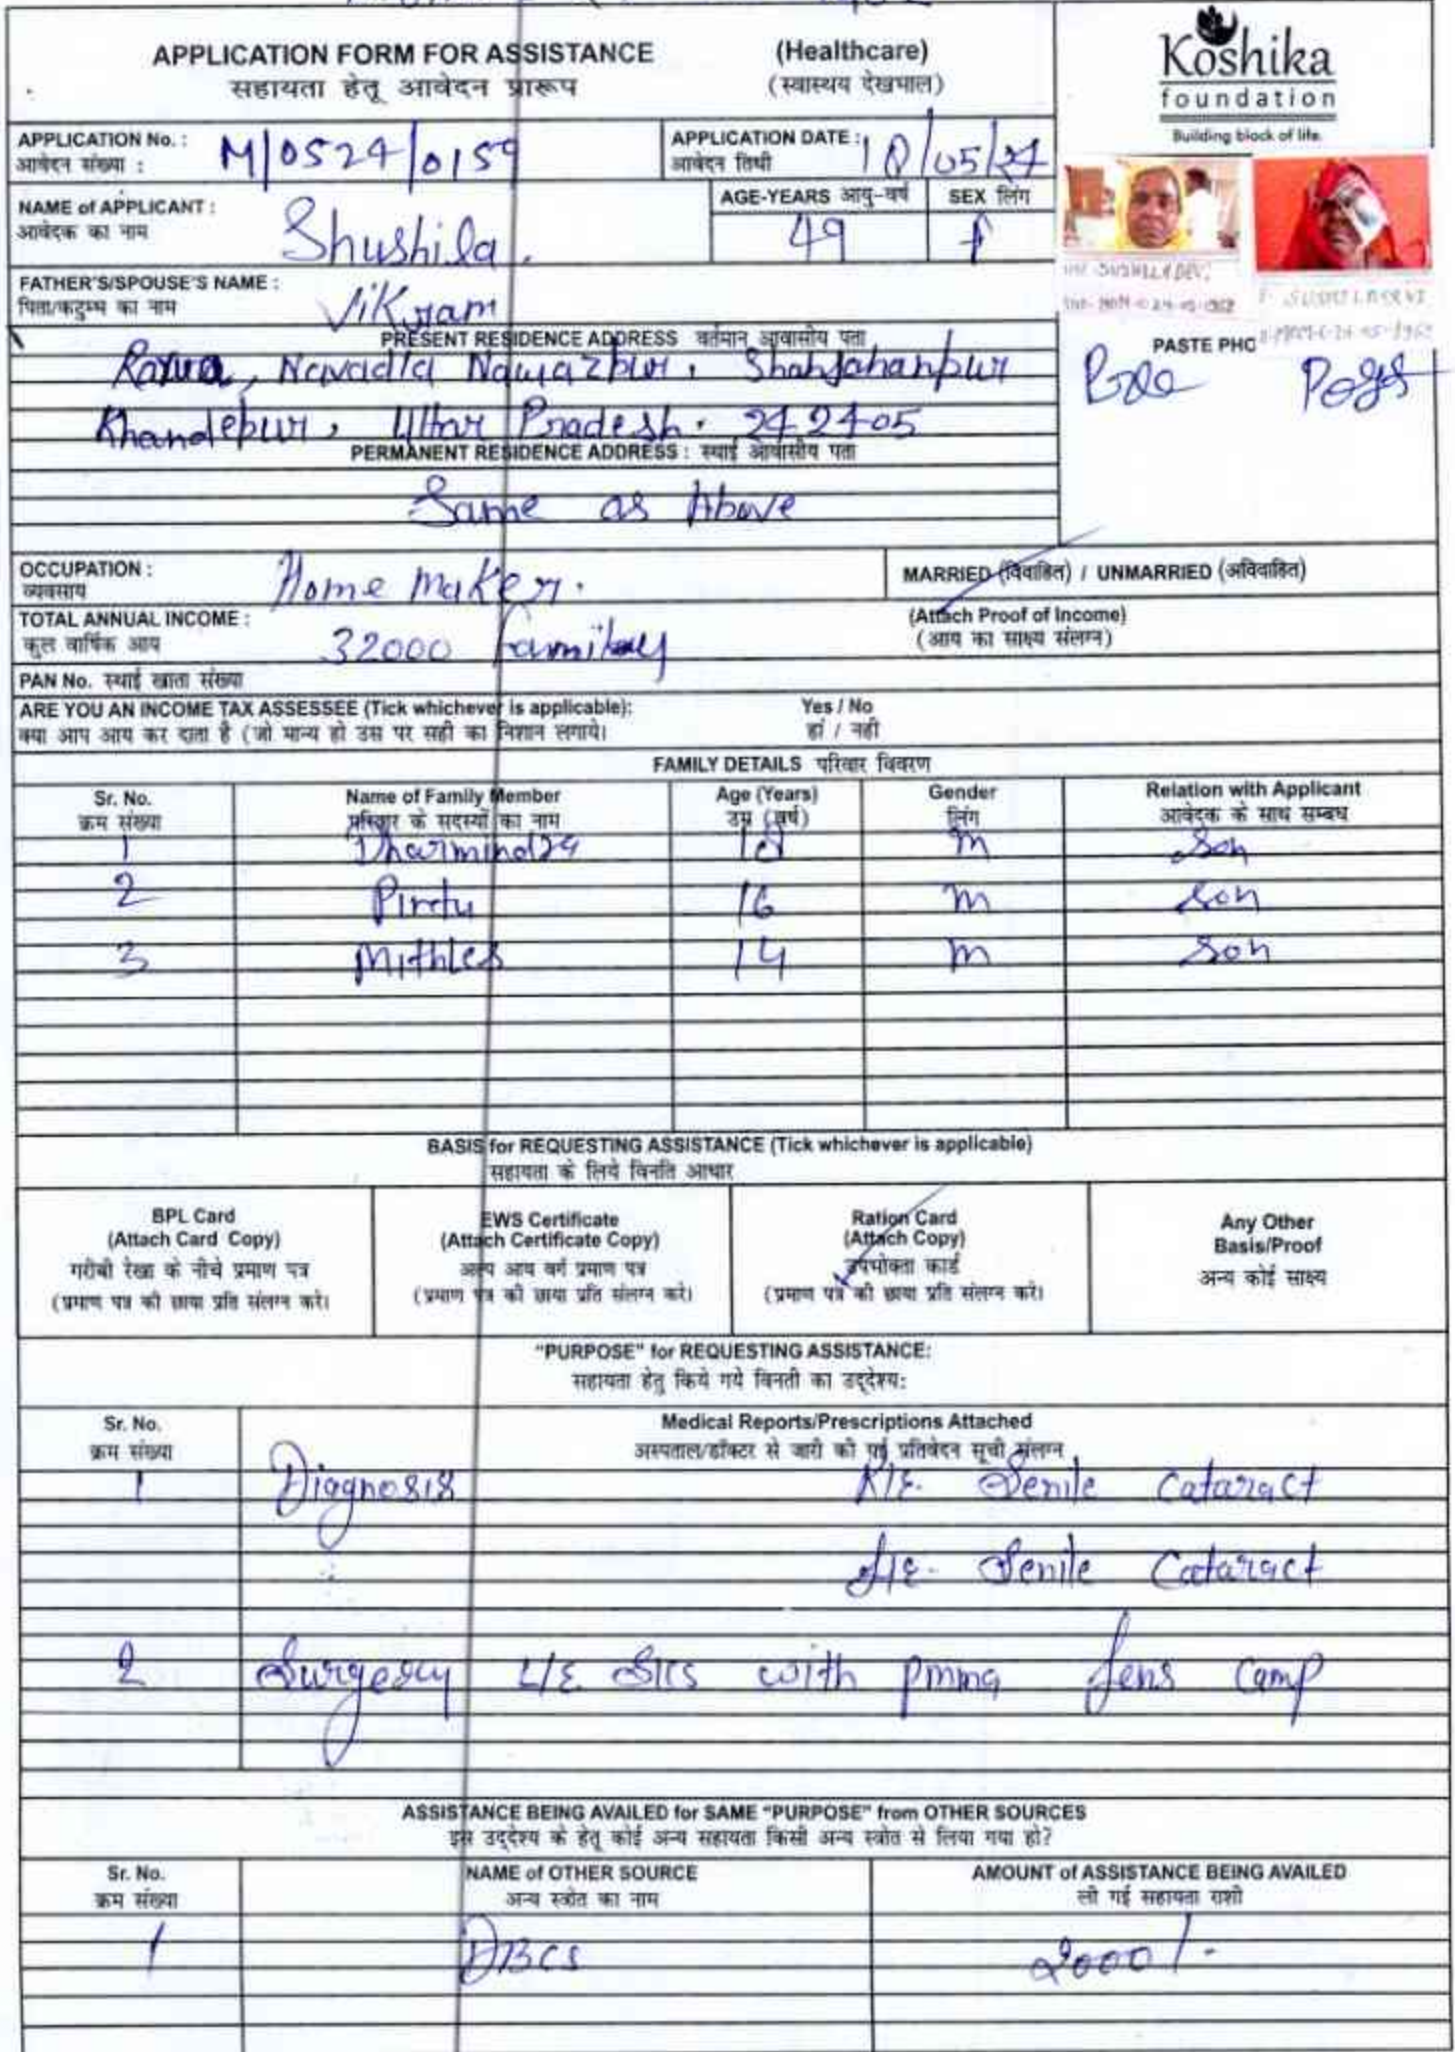 APPLICATION FORM FOR ASSISTANCE (Healthcare)
सहायता हेतू आवेदन प्रारूप (स्वास्थय देखभाल)
Koshika
foundation
Building block of life.
APPLICATION No. : M/0524/0159
आवेदन संख्या :
APPLICATION DATE : 18/05/24
आवेदन तिथी
NAME of APPLICANT : Shushila.
आवेदक का नाम
AGE-YEARS आयु-वर्ष 49
SEX लिंग f
FATHER'S/SPOUSE'S NAME : Vikram
पिता/कटुम्ब का नाम
PRESENT RESIDENCE ADDRESS वर्तमान आवासीय पता
Nawazpur, Shahjahanpur
Khandepur, Uttar Pradesh. 242405
PASTE PHO
PERMANENT RESIDENCE ADDRESS : स्थाई आवासीय पता
Same as Above
OCCUPATION : Home maker.
व्यवसाय
MARRIED (विवाहित) / UNMARRIED (अविवाहित)
TOTAL ANNUAL INCOME : 32000 family
कुल वार्षिक आय
(Attach Proof of Income)
(आय का साक्ष्य संलग्न)
PAN No. स्थाई खाता संख्या
ARE YOU AN INCOME TAX ASSESSEE (Tick whichever is applicable): Yes / No
क्या आप आय कर दाता है (जो मान्य हो उस पर सही का निशान लगाये। हां / नही
FAMILY DETAILS परिवार विवरण
Sr. No. Name of Family Member Age (Years) Gender Relation with Applicant
क्रम संख्या परिवार के सदस्यों का नाम उम्र (वर्ष) लिंग आवेदक के साथ सम्बध
1 Dharmindra 18 m Son
2 Pintu 16 m Son
3 Mithles 14 m Son
BASIS for REQUESTING ASSISTANCE (Tick whichever is applicable)
सहायता के लिये विनति आधार
BPL Card
(Attach Card Copy)
गरीबी रेखा के नीचे प्रमाण पत्र
(प्रमाण पत्र की छाया प्रति संलग्न करे।
EWS Certificate
(Attach Certificate Copy)
अल्प आय वर्ग प्रमाण पत्र
(प्रमाण पत्र की छाया प्रति संलग्न करे।
Ration Card
(Attach Copy)
उपभोक्ता कार्ड
(प्रमाण पत्र की छाया प्रति संलग्न करे।
Any Other
Basis/Proof
अन्य कोई साक्ष्य
"PURPOSE" for REQUESTING ASSISTANCE:
सहायता हेतु किये गये विनती का उद्देश्य:
Sr. No. Medical Reports/Prescriptions Attached
क्रम संख्या अस्पताल/डॉक्टर से जारी की गई प्रतिवेदन सूची संलग्न
1 Diagnosis R/E. Senile Cataract
L/E. Senile Cataract
2 Surgery L/E SICS with pmma Lens Camp
ASSISTANCE BEING AVAILED for SAME "PURPOSE" from OTHER SOURCES
इस उद्देश्य के हेतू कोई अन्य सहायता किसी अन्य स्त्रोत से लिया गया हो?
Sr. No. NAME of OTHER SOURCE AMOUNT of ASSISTANCE BEING AVAILED
क्रम संख्या अन्य स्त्रोत का नाम ली गई सहायता राशी
1 DBCS 2000/-